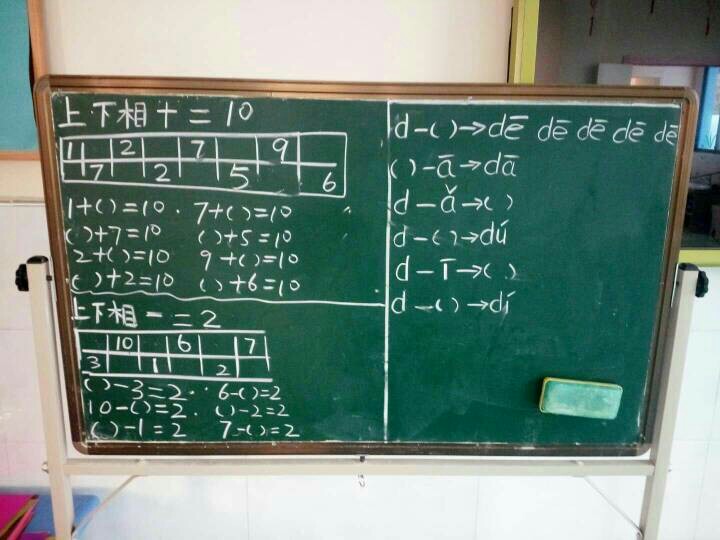 上下相+=10
1 2 7 9
7 2 5 6
1+( )=10 · 7+( )=10
( )+7=10 ( )+5=10
2+( )=10 9+( )=10
( )+2=10 ( )+6=10
上下相-=2
10 6 7
3 1 2
( )-3=2 · 6-( )=2
10-( )=2 · ( )-2=2
( )-1=2 7-( )=2
d-( )→dē dē dē dē dē
( )-ā→dā
d-ǎ→( )
d-( )→dú
d-ī→( )
d-( )→dí